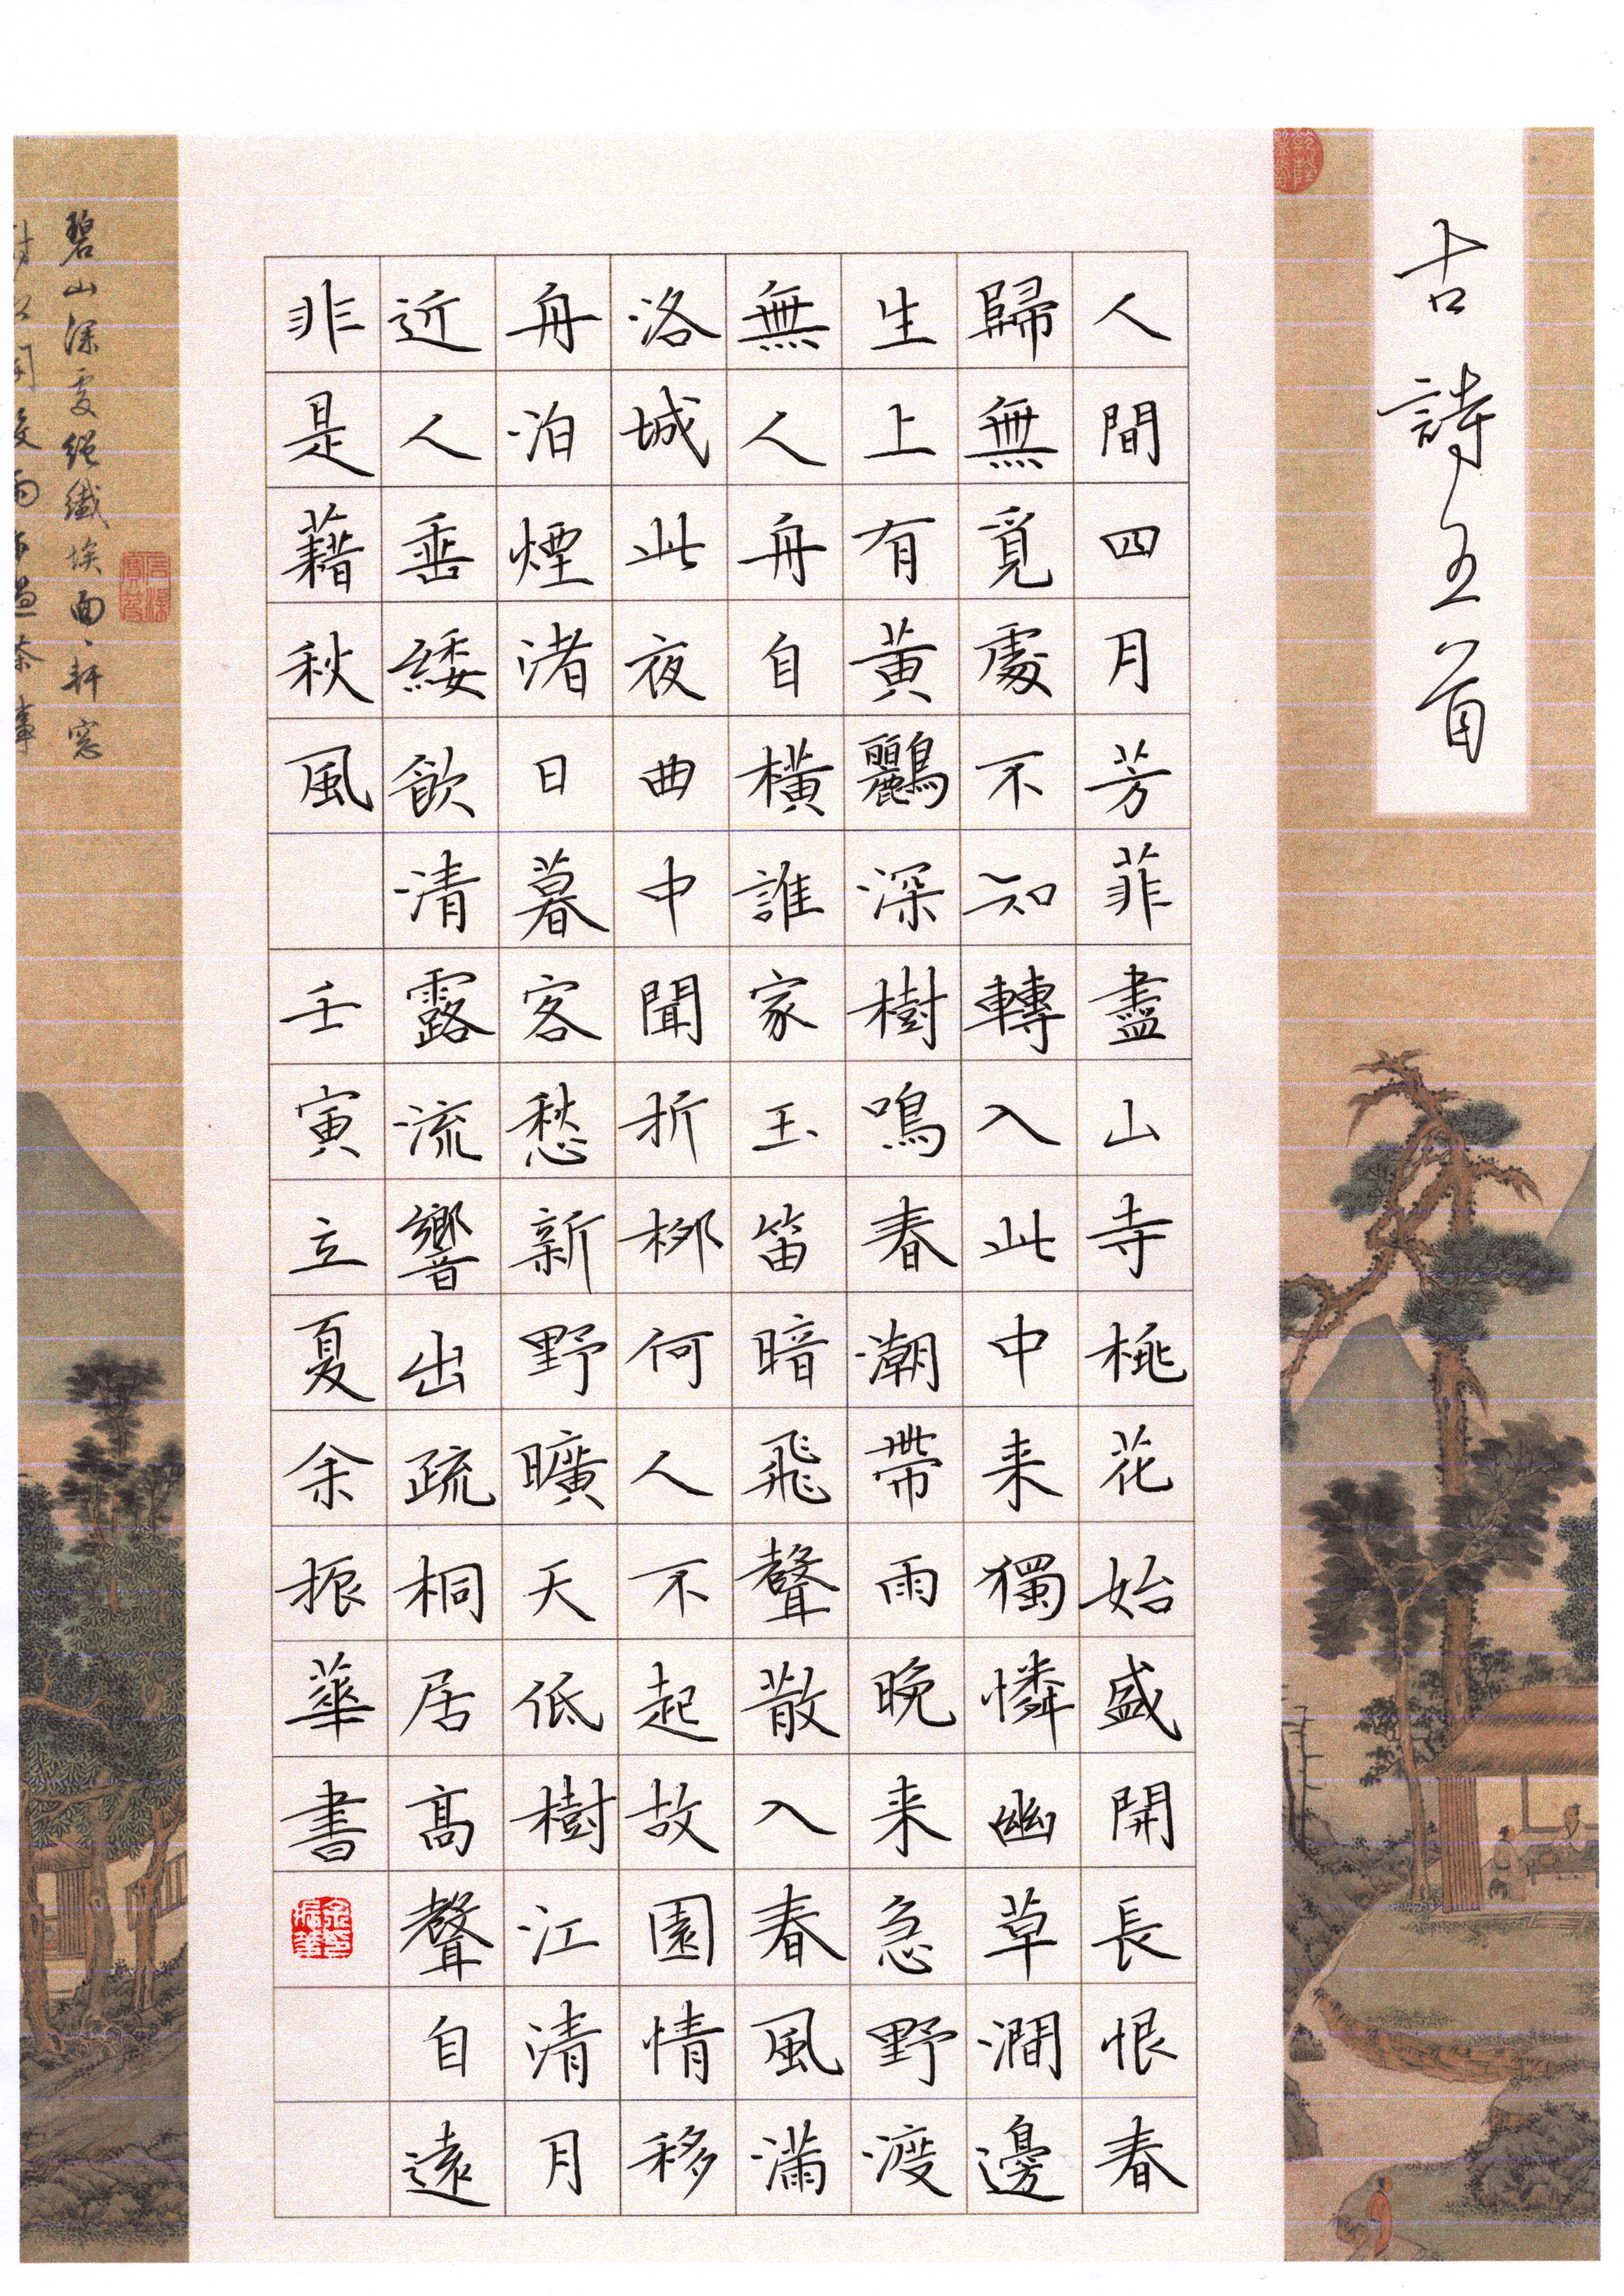 古詩五首
人間四月芳菲盡山寺桃花始盛開長恨春
歸無覓處不知轉入此中来獨憐幽草澗邊
生上有黃鸝深樹鳴春潮帶雨晚来急野渡
無人舟自橫誰家玉笛暗飛聲散入春風滿
洛城此夜曲中聞折柳何人不起故園情移
舟泊煙渚日暮客愁新野曠天低樹江清月
近人垂緌飲清露流響出疏桐居高聲自遠
非是藉秋風 壬寅立夏余振華書
余振華印
碧山深處絕纖埃面、軒窓
對水開穀雨乍過茶事